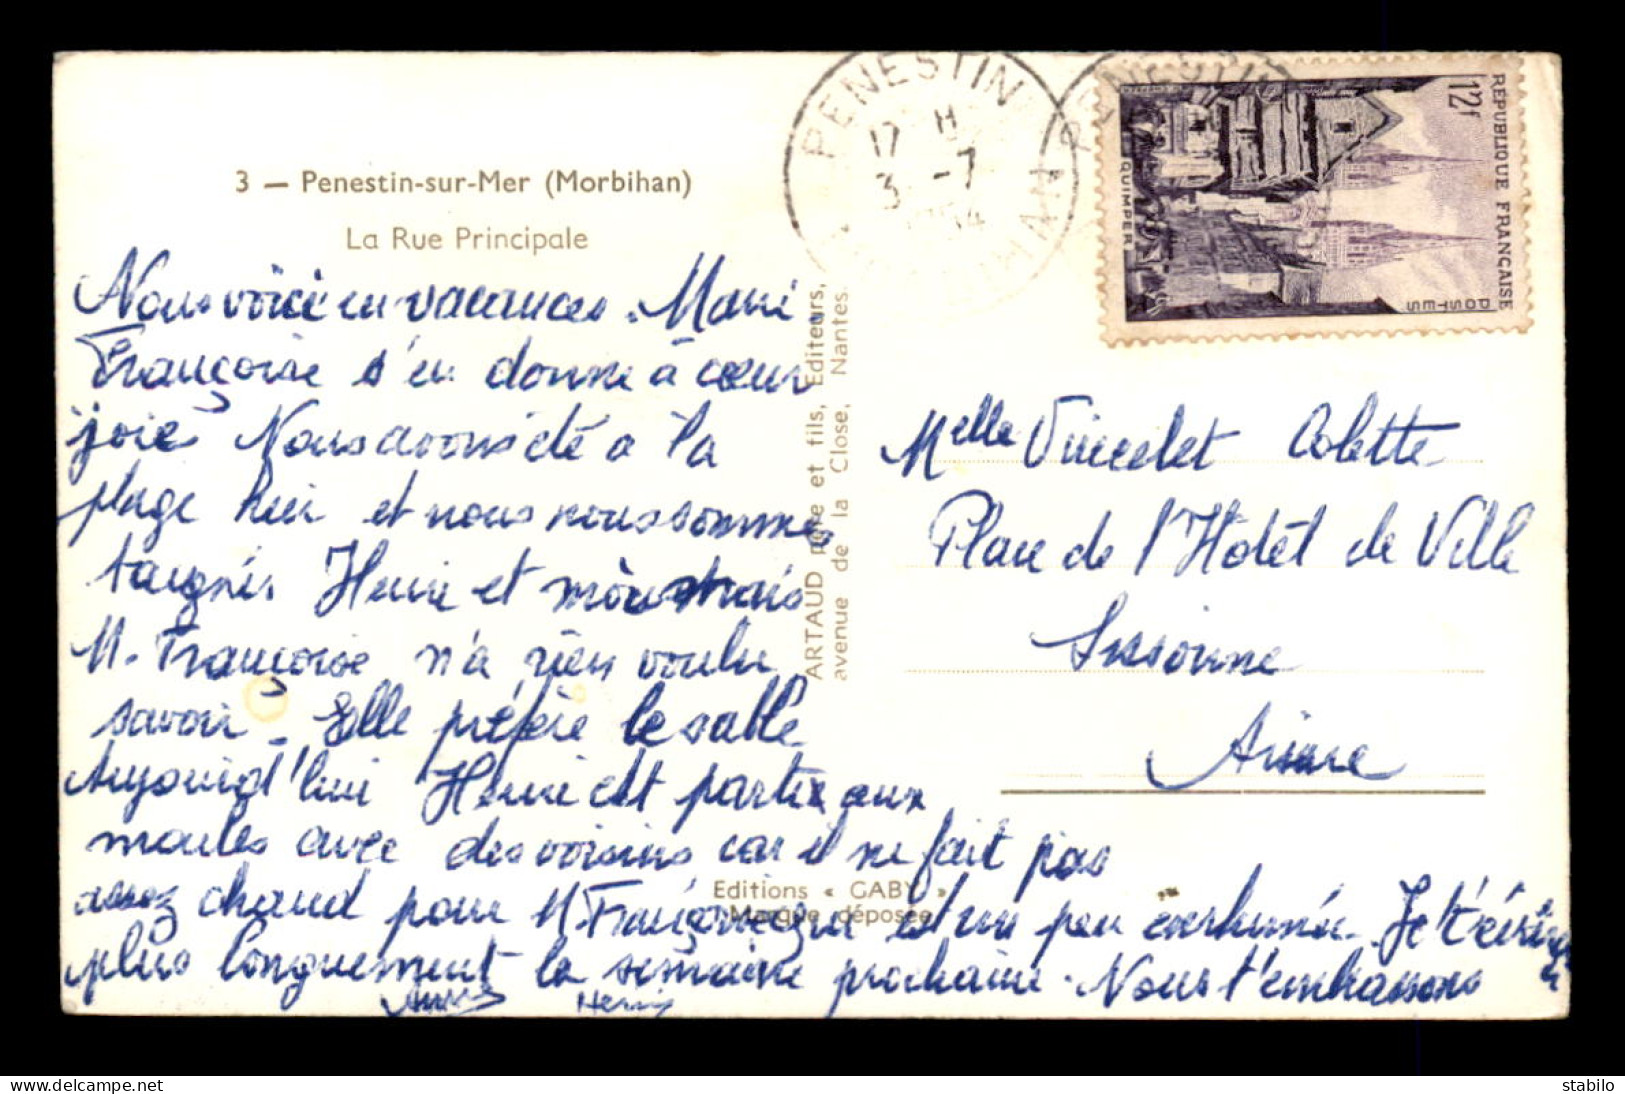 3 — Penestin-sur-Mer (Morbihan)
La Rue Principale
Nous voici en vacances. Marie
Françoise s'en donne à cœur
joie Nous avons été à la
plage hier et nous nous sommes
baignés Henri et moi mais
M. Françoise n'a rien voulu
savoir _ Elle préfère le sable
Aujourd'hui Henri est parti aux
moules avec des voisins car il ne fait pas
assez chaud pour M. Françoise qui est un peu enrhumée. Je t'écrirai
plus longuement la semaine prochaine. Nous t'embrassons
Henri
ARTAUD père et fils, Editeurs,
avenue de la Close, Nantes.
Editions « GABY »
Marque déposée
PENESTIN
17 H
3 -7
1954
MORBIHAN
PENESTIN
12f
REPUBLIQUE FRANÇAISE
POSTES
QUIMPER
Melle Vincelet Colette
Place de l'Hotêl de Ville
Sissonne
Aisne
stabilo